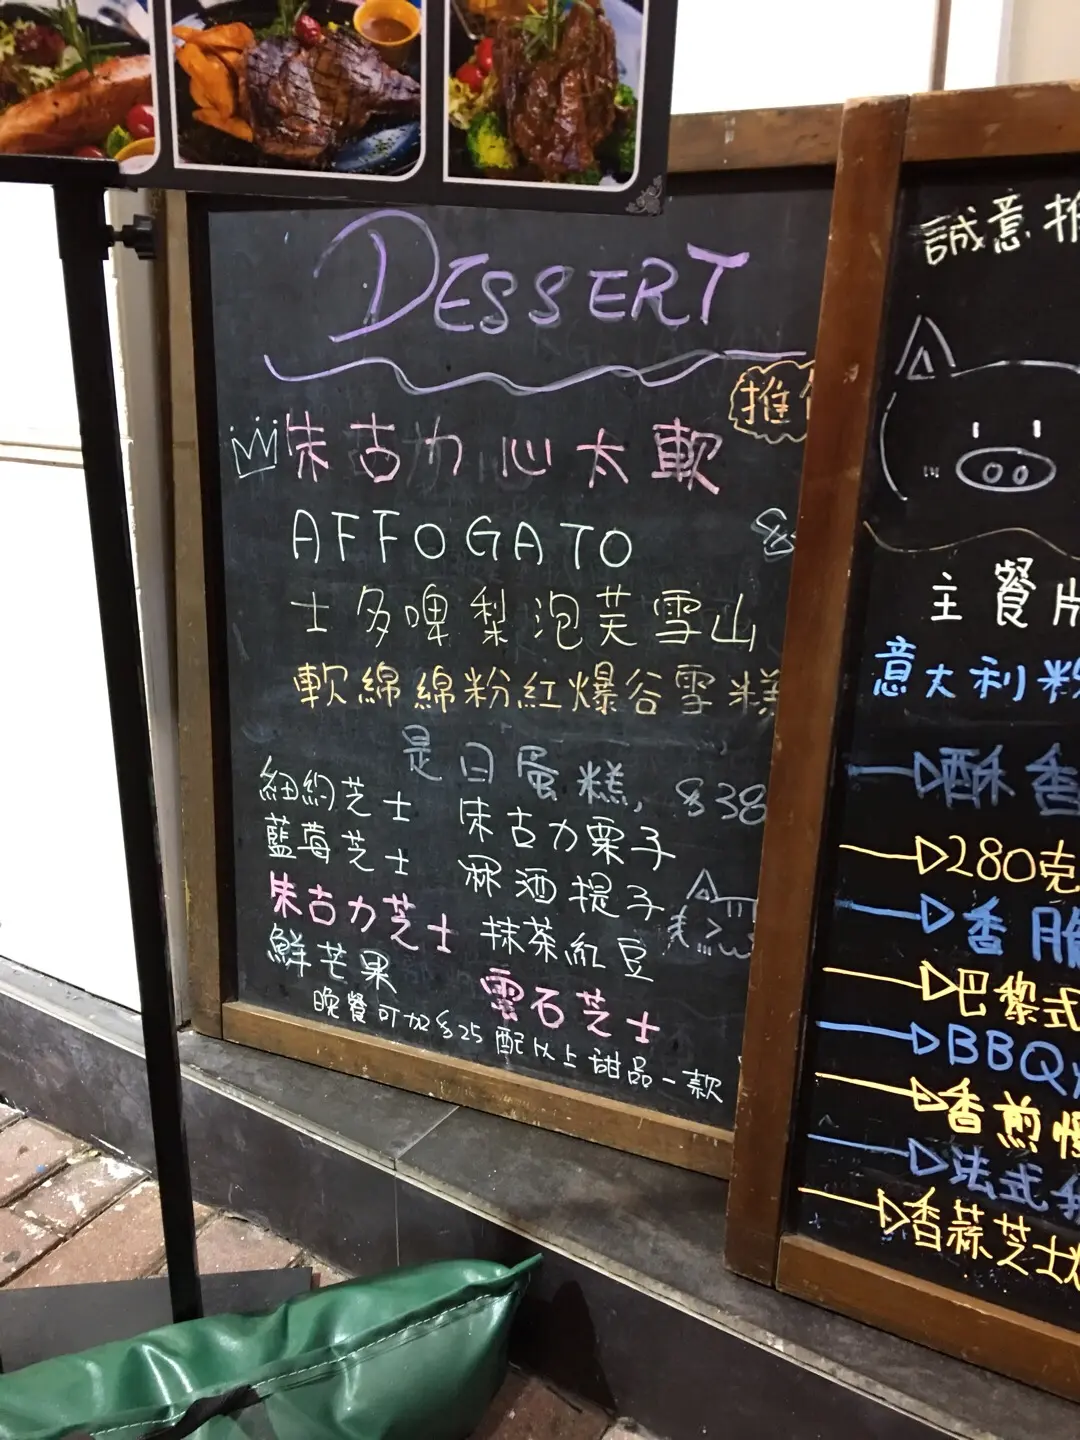 DESSERT
推
朱古力心太軟
AFFOGATO
士多啤梨泡芙雪山
軟綿綿粉紅爆谷雪糕
是日蛋糕, $38
紐約芝士 朱古力栗子
藍莓芝士 冧酒提子
朱古力芝士 抹茶紅豆
鮮芒果 雲石芝士
晚餐可加$25配以上甜品一款
誠意推
主餐
意大利粉
酥香
280克
香脆
巴黎式
BBQ
香煎
法式
香蒜芝士